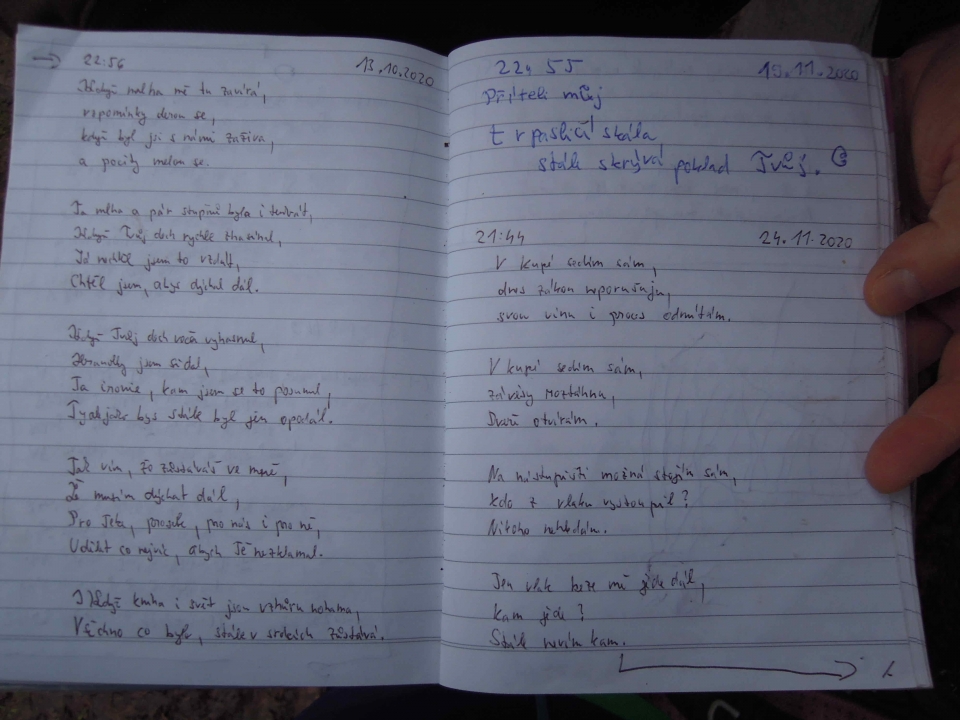 → 22:56 13.10.2020
Když mlha mě tu zavírá,
vzpomínky derou se,
když byl jsi s námi zaživa,
a pocity melou se.
Ta mlha a pár stupínů byla i tenkrát,
Když Tvůj dech rychle zhasínal,
Já nechtěl jsem to vzdát,
Chtěl jsem, abys dýchal dál.
Když Tvůj dech zcela vyhasnul,
jsem sídal,
Ta kam jsem se to posunul,
Ty jakožto bys stále byl jen opodál.
Tak vím, že zůstáváš ve mně,
Že musím dýchat dál,
Pro Teba, prosek, pro nás i pro mě,
Udělat co nejvíc, abych Tě nezklamal.
I když kniha i svět jsou vzhůru nohama,
Všechno co bylo, stále v srdcích zůstává.
22:55 19.11.2020
Příteli můj
trpasličí skála
stále skrývá poklad Tvůj.
21:44 24.11.2020
V kupé sedím sám,
dnes zákon neporušuju,
svou vinu i proces odmítám.
V kupé sedím sám,
závěsy roztáhnu,
Dveře otvírám.
Na nástupišti možná stojím sám,
Kdo z vlaku vystoupil?
Nikoho nehledám.
Jen vlak beze mě jede dál,
Kam jede?
Stále nevím kam.